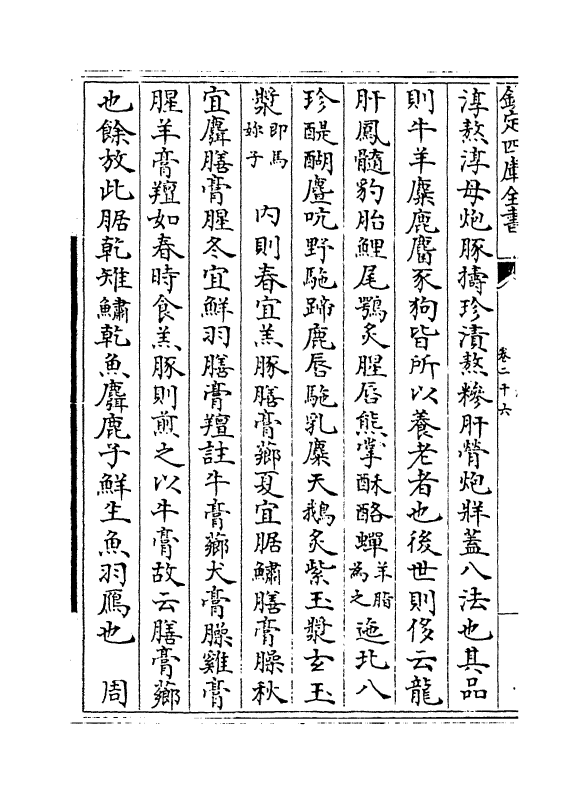 欽定四庫全書
卷二十六
淳熬淳母炮豚擣珍漬熬糝肝膋炮牂蓋八法也其品
則牛羊麋鹿麕豕狗皆所以養老者也後世則侈云龍
肝鳳髓豹胎鯉尾鶚炙猩唇熊掌酥酪蟬羊脂為之迤北八
珍醍醐麆吭野駞蹄鹿唇駞乳麋天鵝炙紫玉漿玄玉
漿即馬妳子　內則春宜羔豚膳膏薌夏宜腒鱐膳膏臊秋
宜麛膳膏腥冬宜鮮羽膳膏羶註牛膏薌犬膏臊雞膏
腥羊膏羶如春時食羔豚則煎之以牛膏故云膳膏薌
也餘放此腒乾雉鱐乾魚麛鹿子鮮生魚羽鴈也　周